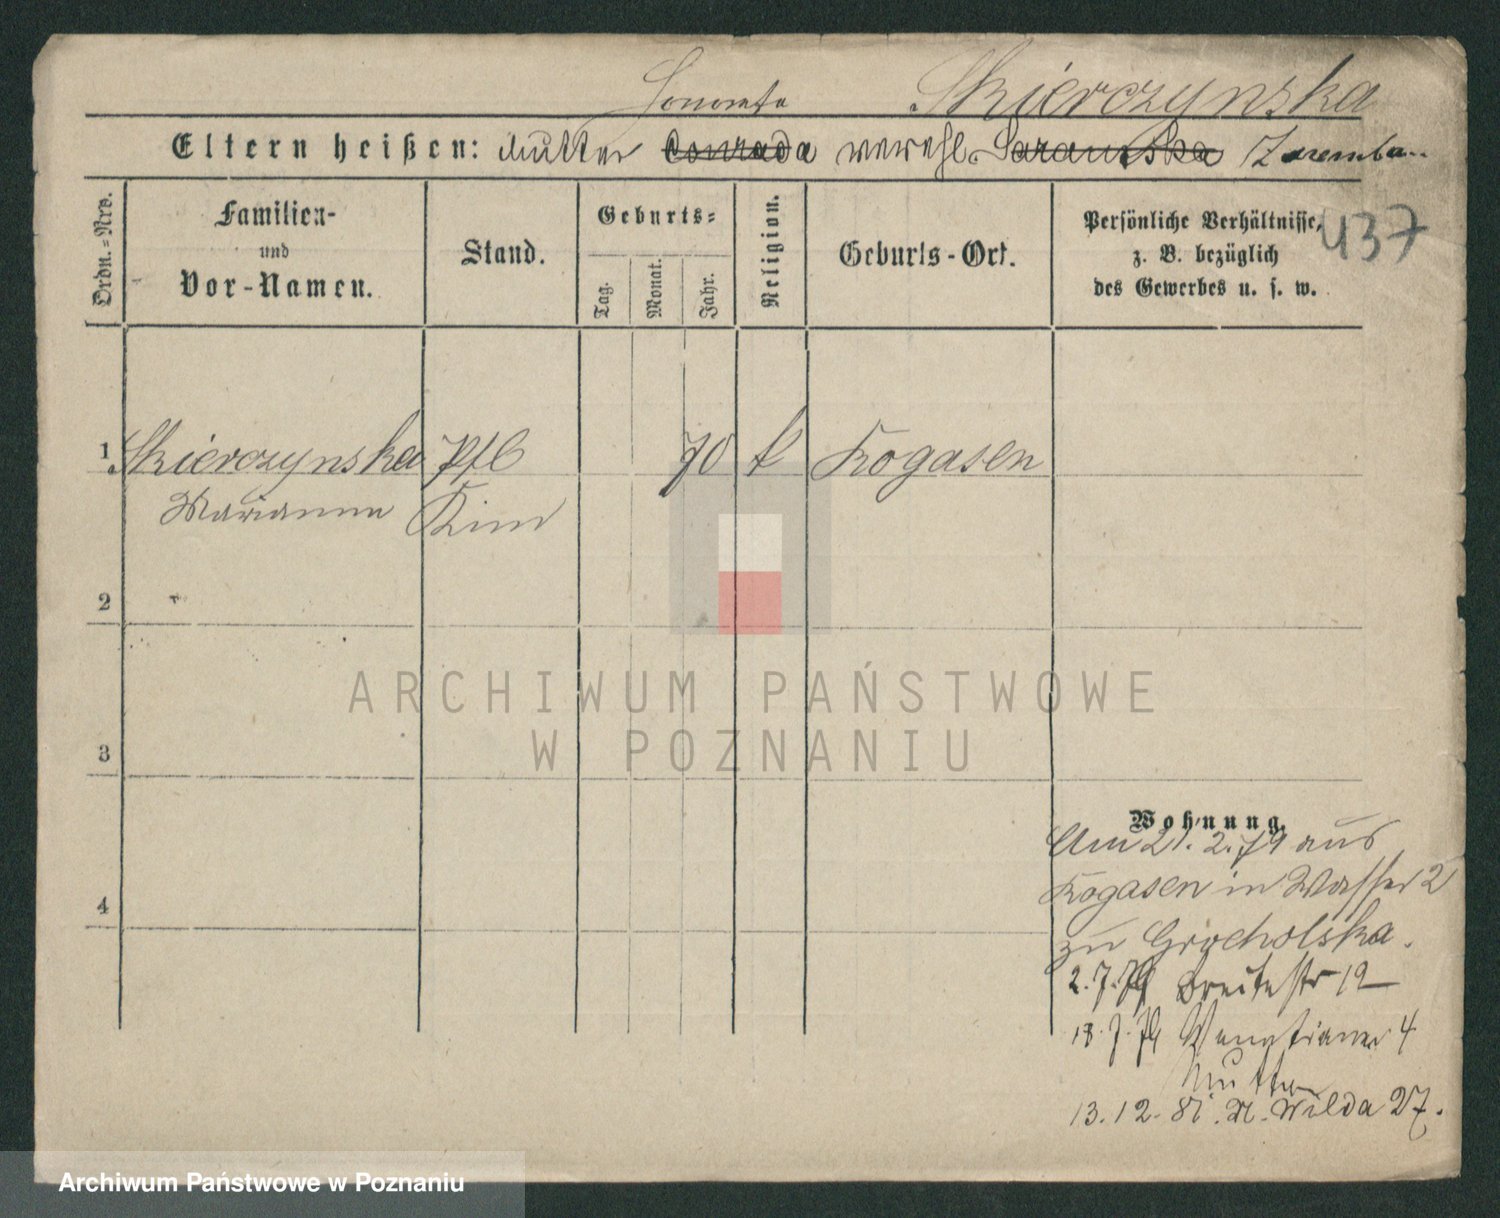 Skierczynska
Eltern heißen: Mutter Conrada verehl. Zaremba
437
Ordn.-Nro.
Familien-
und
Vor-Namen.
Stand.
Geburts-
Tag.
Monat.
Jahr.
Religion.
Geburts-Ort.
Persönliche Verhältnisse,
z. B. bezüglich
des Gewerbes u. s. w.
1 Skierczynska Pfl 70 k Rogasen
Marianna Kind
2
3
4
Wohnung.
Am 21.2.79 aus
Rogasen in Wasser 2
zu Grocholska.
2.7.79 Breitestr 12
18.7.79 Venetianer 4
Mutter
13.12.81. Wilda 27.
ARCHIWUM PAŃSTWOWE
W POZNANIU
Archiwum Państwowe w Poznaniu